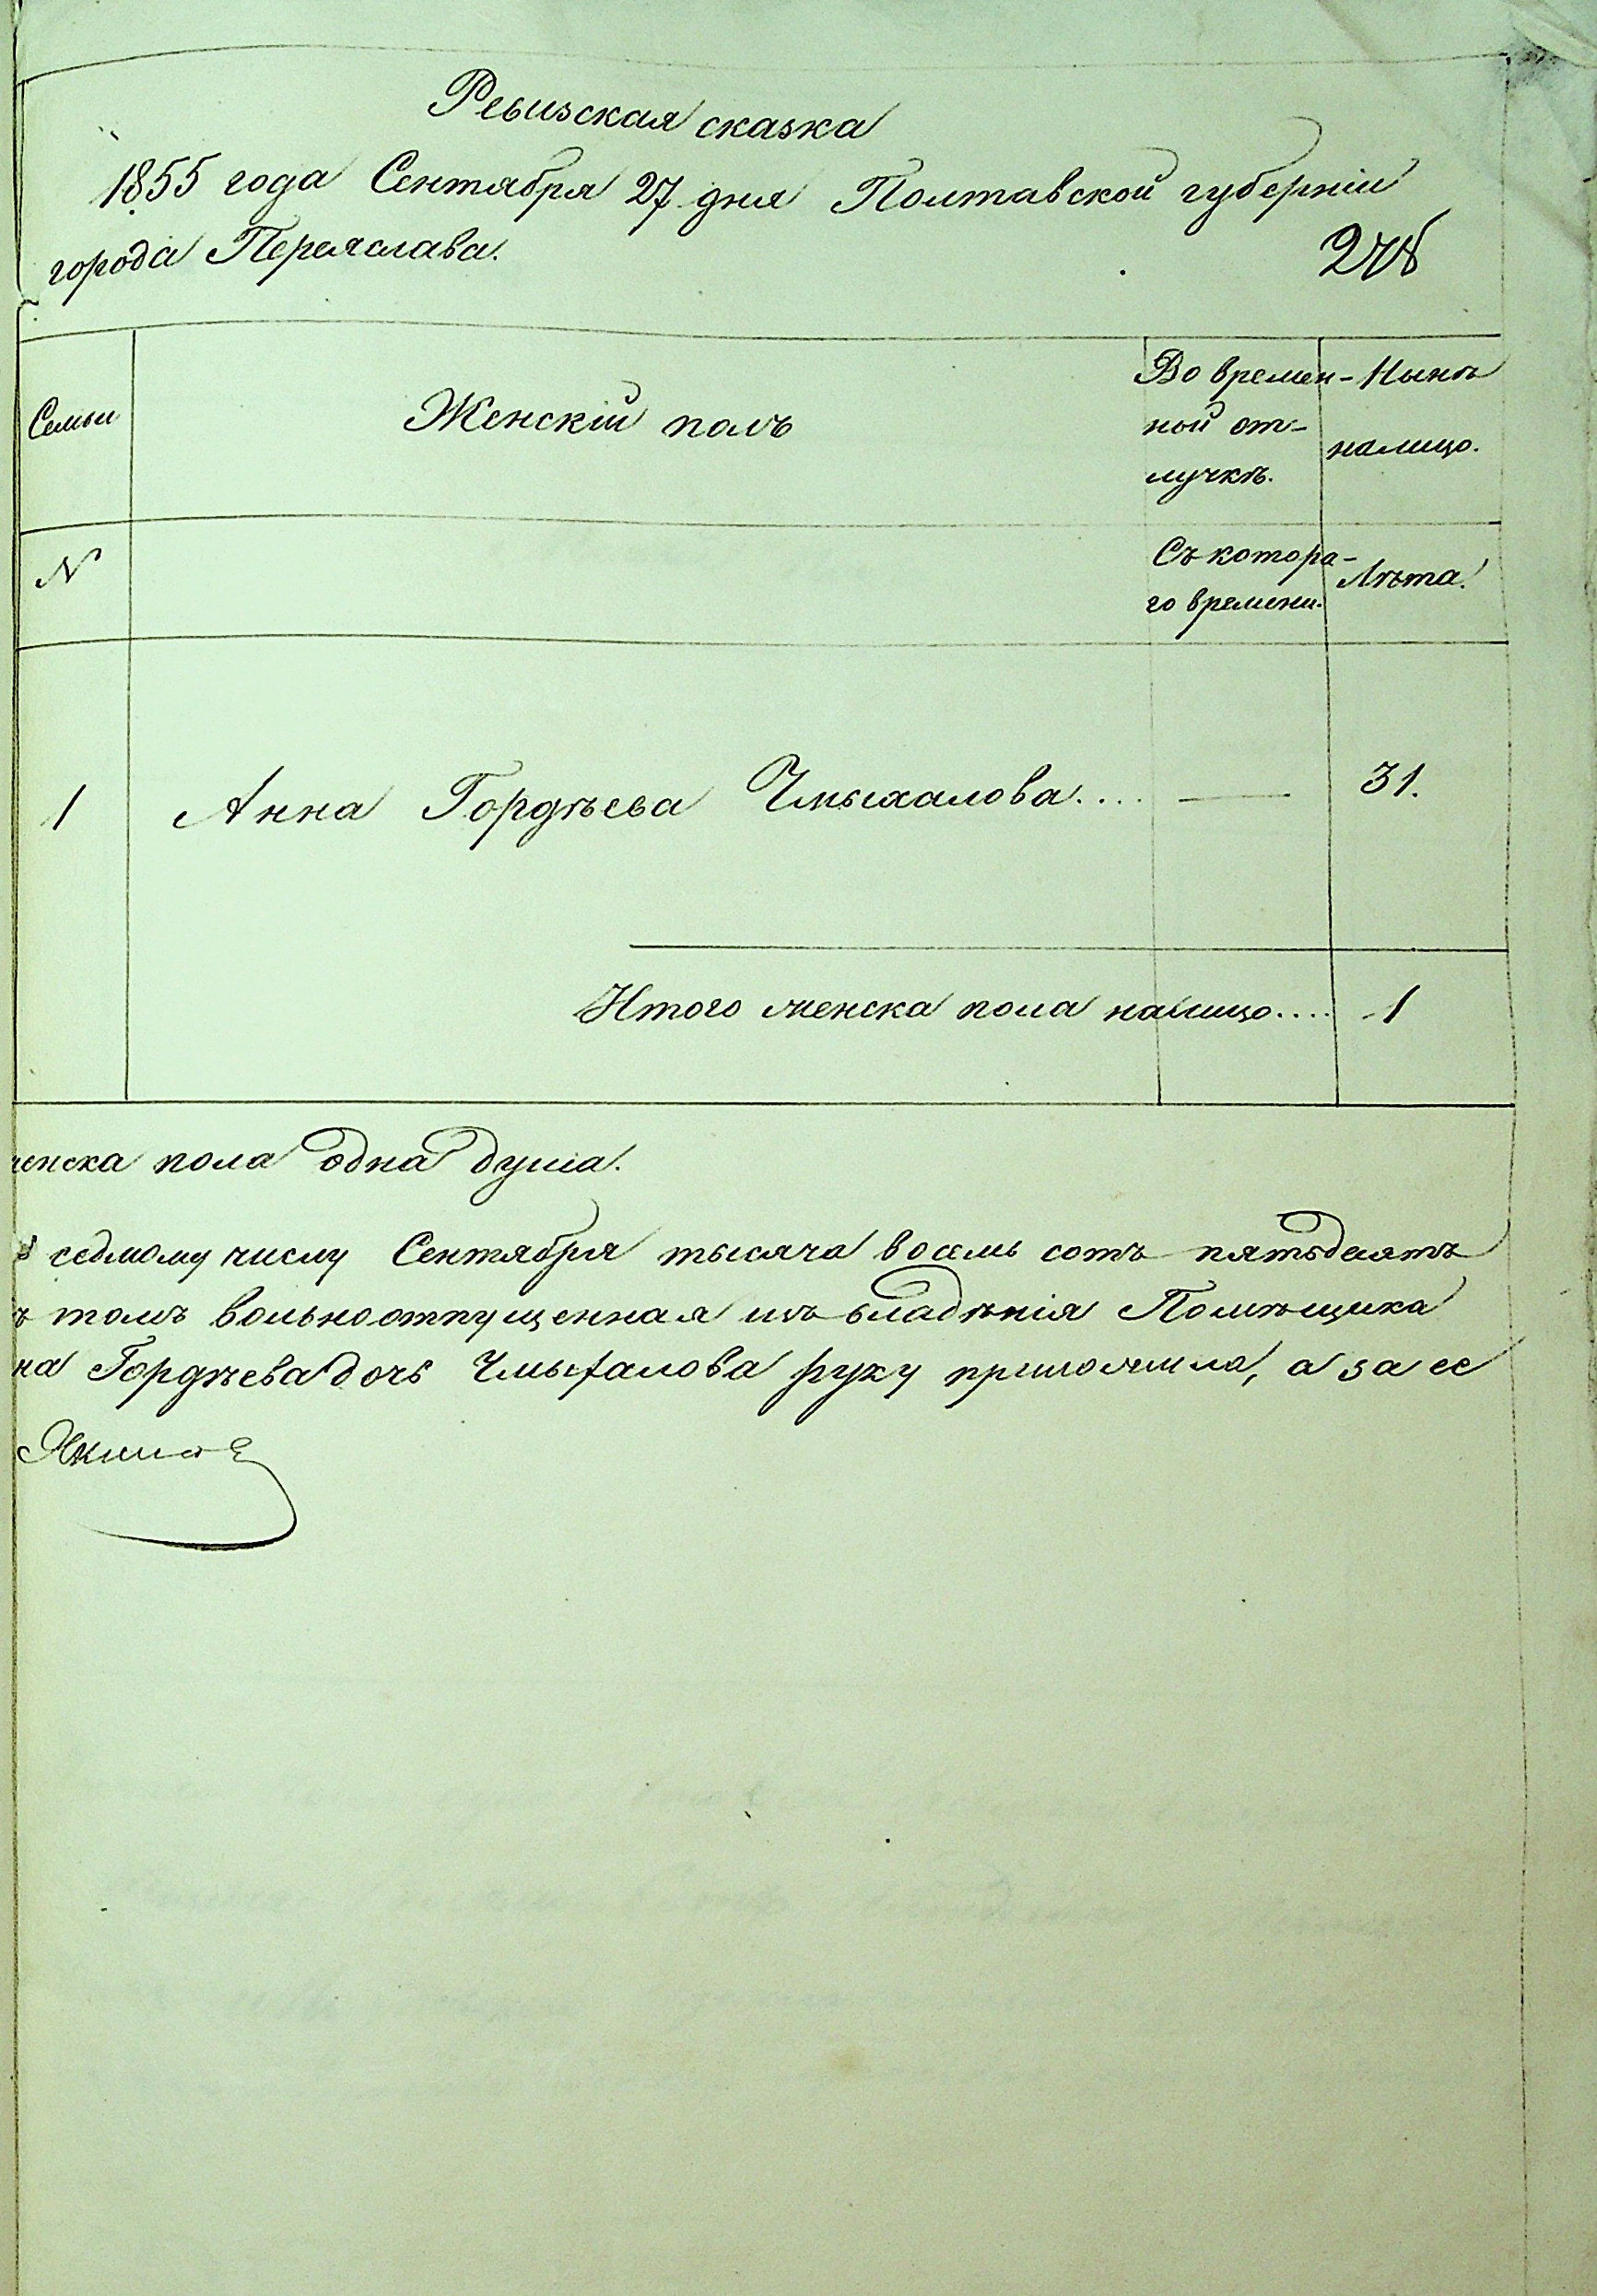 Ревизская сказка
1855 года Сентября 27 дня Полтавской губерніи
города Переяслава.
Семьи
Женскій полъ
Во времен-
ной от-
лучкѣ.
Нынѣ
налицо.
N
Съ котора-
го времени.
Лѣта.
1 Анна Гордѣева Чмыхалова.... — 31.
Итого женска пола налицо.... 1
женска пола одна душа.
седмому числу Сентября тысяча восемь сотъ пятьдесятъ
томъ вольноотпущенная изъ владѣнія Помѣщика
на Гордѣева дочь Чмыхалова руку приложила, а за ее